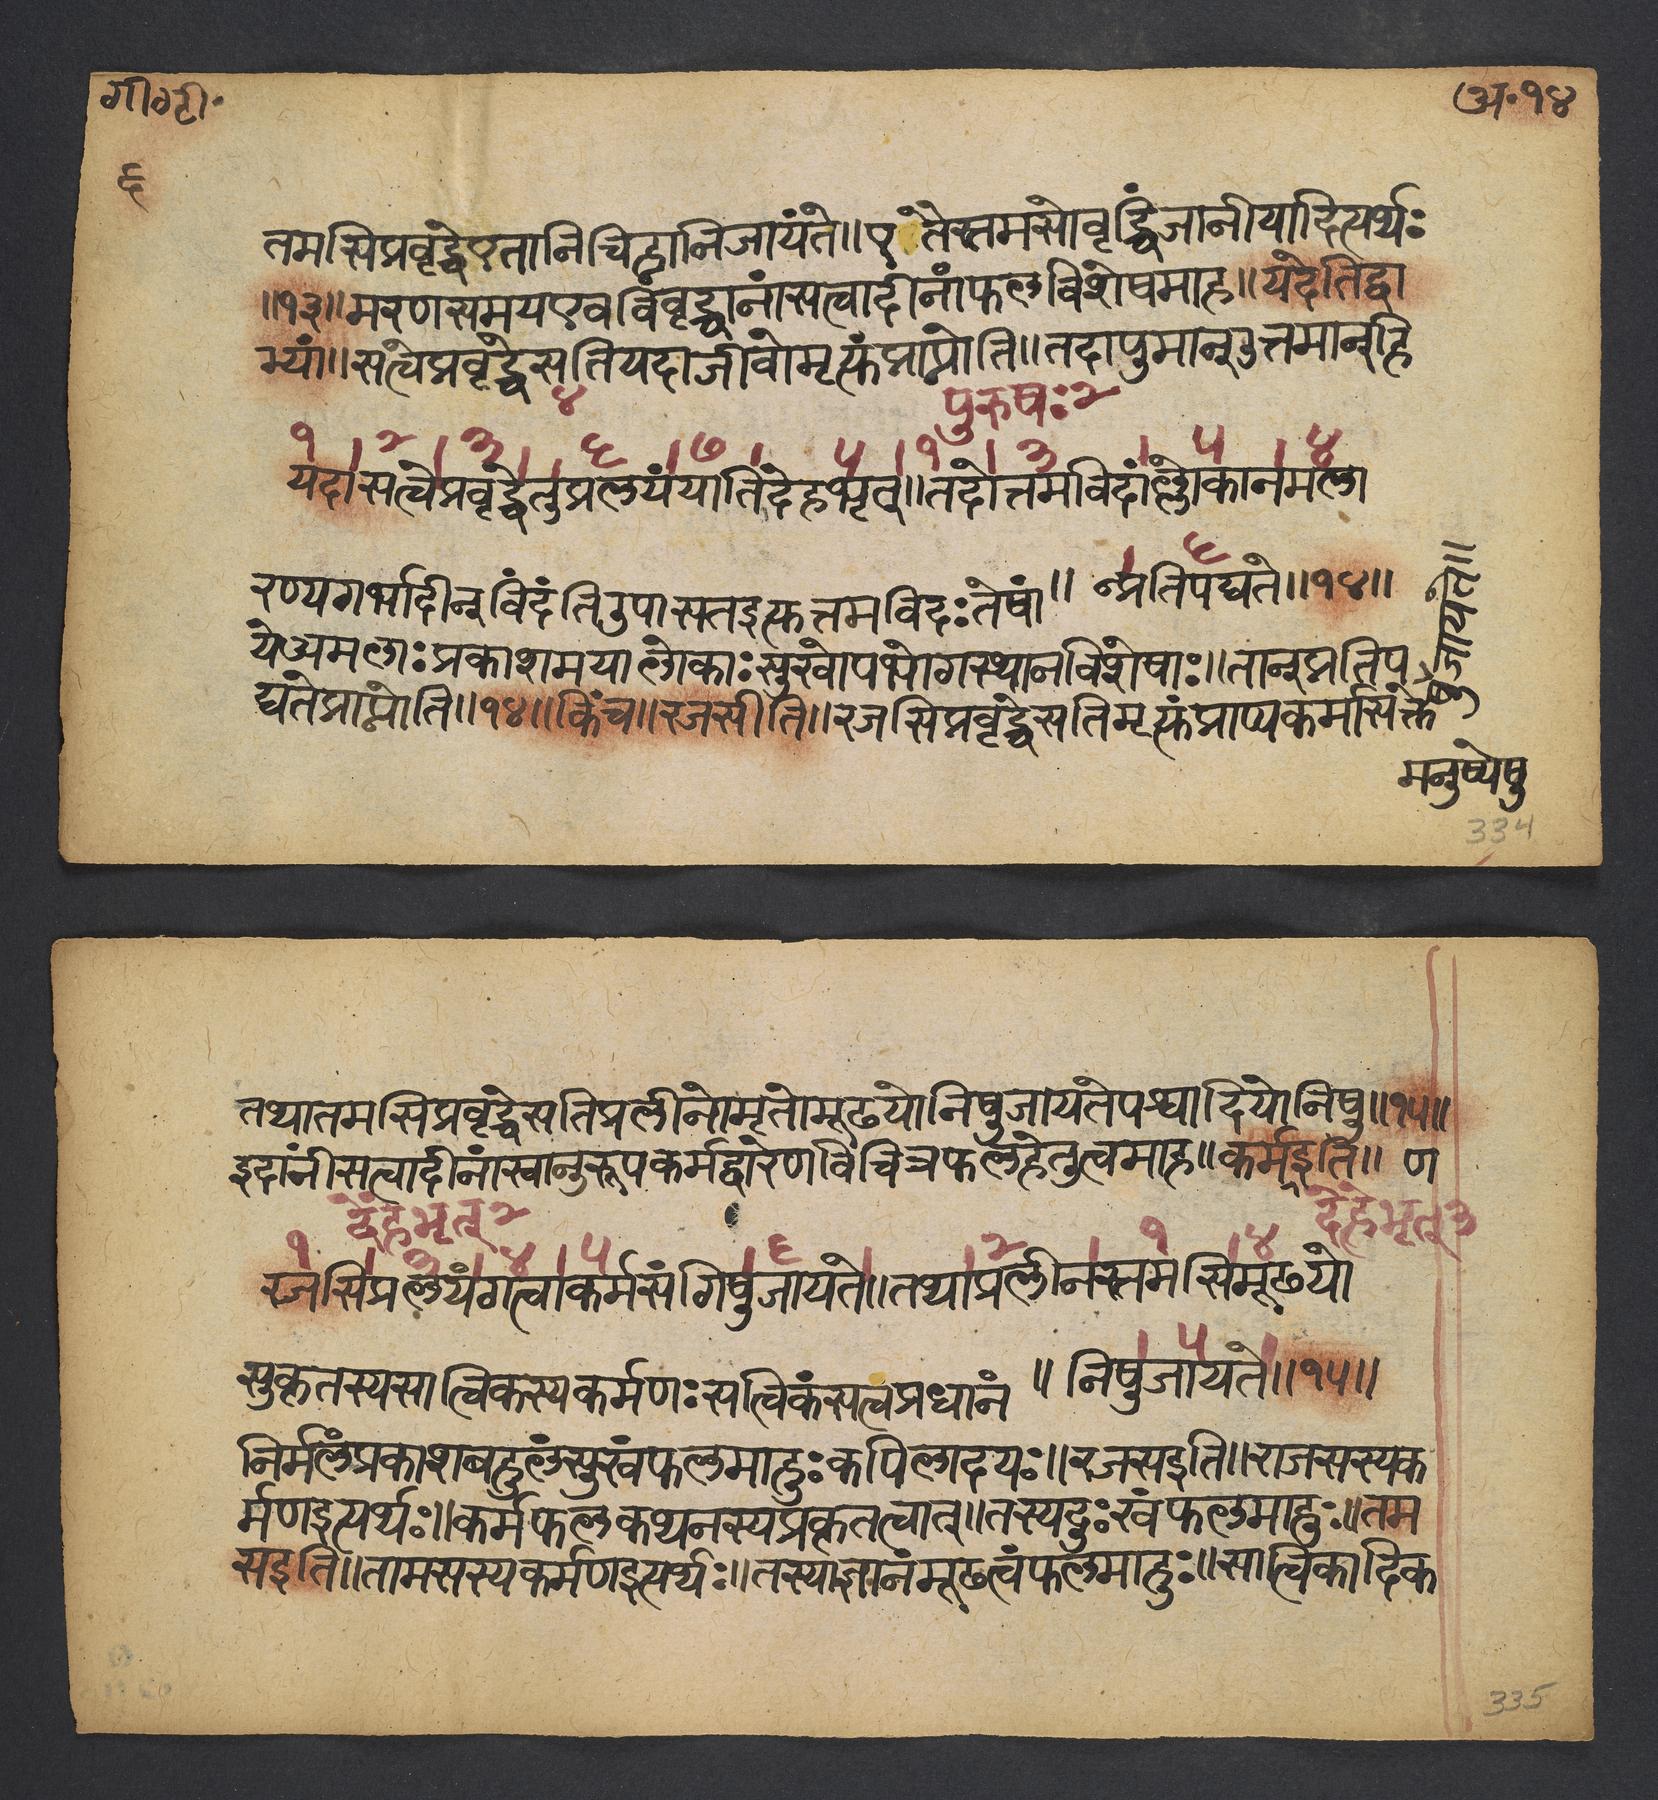 गी॰टी॰
अ॰१४
६
तमसिप्रवृद्धेएतानिचिह्नानिजायंते॥ए तैस्तमसोवृद्धिंजानीयादित्यर्थः
॥१३॥मरणसमयएवविवृद्धानांसत्वादीनांफलविशेषमाह॥यदेतिद्वा
भ्यां॥सत्वेप्रवृद्धेसतियदाजीवोमृत्युंप्राप्नोति॥तदापुमानुत्तमान्हि
४ पुरुषः२
१ २ ३ ६ ७ ५ १ ३ ५ ४
यदासत्वेप्रवृद्धेतुप्रलयंयातिदेहभृत्॥तदोत्तमविदांल्लोकानमला
६
न्प्रतिपद्यते॥१४॥
रण्यगर्भादीन्विदंतिउपासतइत्युत्तमविदःतेषां॥
येअमलाःप्रकाशमयालोकाःसुखोपभोगस्थानविशेषाः॥तान्प्रतिप
द्यतेप्राप्नोति॥१४॥किंच॥रजसीति॥रजसिप्रवृद्धेसतिमृत्युंप्राप्यकर्मासक्ते
षुजायते॥
मनुष्येषु
334
तथातमसिप्रवृद्धेसतिप्रलीनोमृतोमूढयोनिषुजायतेपश्वादियोनिषु॥१५॥
इदानीसत्वादीनांस्वानुरूपकर्मद्वारेणविचित्रफलहेतुत्वमाह॥कर्मइति॥ ण
देहभृत्२ देहभृत्३
१ ३ ४ ५ ६ २ १ ४
रजसिप्रलयंगत्वाकर्मसंगिषुजायते॥तथाप्रलीनस्तमसिमूढयो
५
निषुजायते॥१५॥
सुकृतस्यसात्विकस्यकर्मणःसत्विकंसत्वप्रधानं॥
निर्मलंप्रकाशबहुलंसुखंफलमाहुःकपिलादयः॥रजसइति॥राजसस्यक
र्मणइत्यर्थः॥कर्मफलकथनस्यप्रकृतत्वात्॥तस्यदुःखंफलमाहुः॥तम
सइति॥तामसस्यकर्मणइत्यर्थः॥तस्याज्ञानंमूढत्वंफलमाहुः॥सात्विकादिक
335